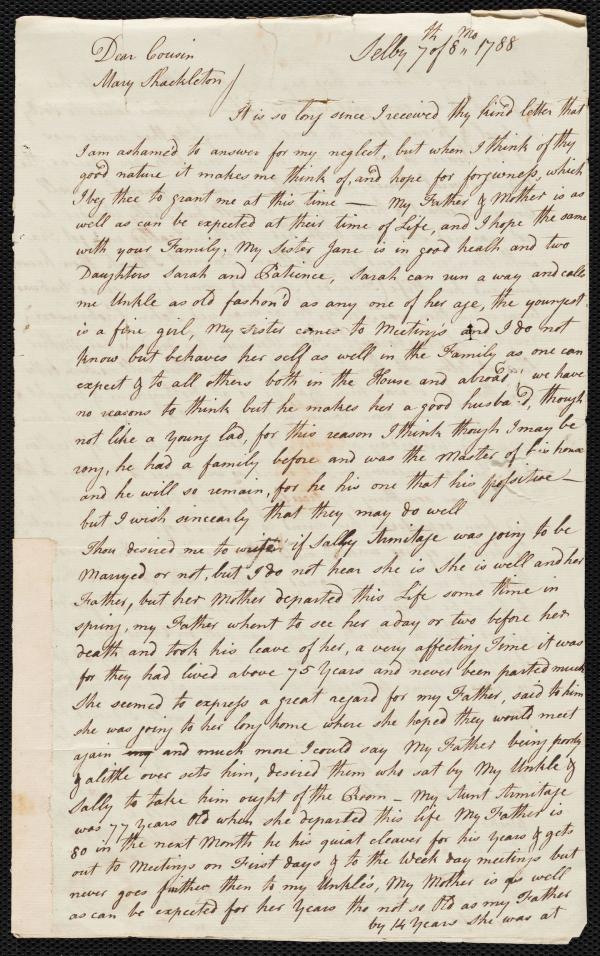 Dear Cousin
Mary Shackleton
Selby 7th of 8th Mo 1788
It is so long since I received thy kind letter that
I am ashamed to answer for my neglect, but when I think of thy
good nature it makes me think of, and hope for forgiveness, which
I beg thee to grant me at this time — My Father & Mother is as
well as can be expected at their time of Life, and I hope the same
with your Family. My sister Jane is in good health and two
Daughters Sarah and Patience, Sarah can run a way and calls
me Unkle as old fashon'd as any one of her age, the youngest
is a fine girl, My sister comes to Meetings and I do not
know but behaves her self as well in the Family as one can
expect & to all others both in the House and abroad we have
no reasons to think but he makes her a good husband, though
not like a young lad, for this reason I think though I may be
rong, he had a family before and was the Master of his house
and he will so remain, for he his one that his possitive —
but I wish sincearly that they may do well
Thou desired me to write if Sally Armitage was going to be
Marryed or not, but I do not hear she is She is well and her
Father, but her Mother departed this Life some time in
spring, my Father whent to see her a day or two before her
death and took his leave of her, a very affecting Time it was
for they had lived above 75 Years and never been parted much
She seemed to express a great regard for my Father, said to him
she was going to her long home where she hoped they would meet
again and much more I could say My Father being poorly
& alittle over sets him, desired them who sat by My Unkle &
Sally to take him ought of the Room — My Aunt Armitage
was 77 years Old when she departed this life My Father is
80 in the next Month he his quiat cleaver for his years & gets
out to Meetings on First days & to the Week day meetings but
never goes further then to my Unkle's, My Mother is as well
as can be expected for her Years tho not so Old as my Father
by 14 Years she was at